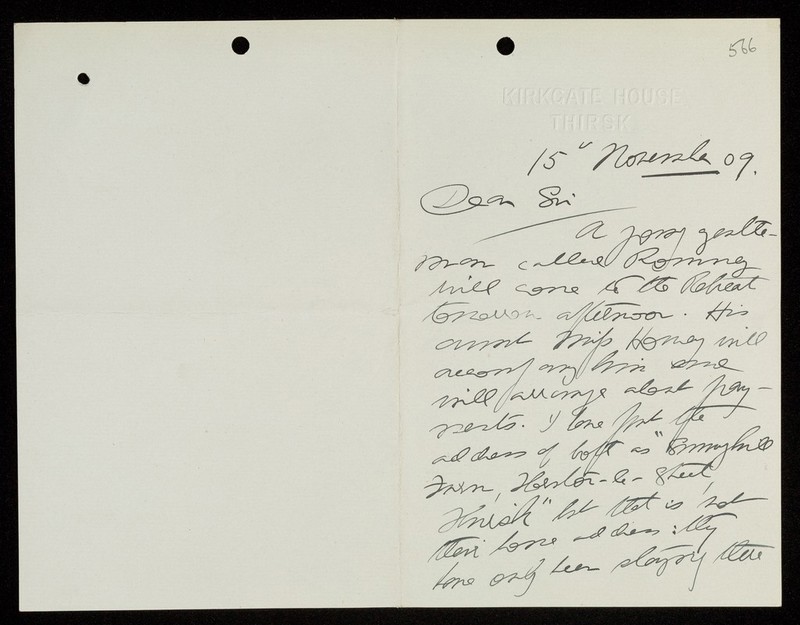 566
KIRKGATE HOUSE
THIRSK
15th November 09.
Dear Sir
A young gentle-
man called Romney
will come to the Retreat
tomorrow afternoon. His
aunt Miss Honey will
accompany him and
will arrange about pay-
ments. I have put the
address of both as "
Farm, -le-Street,
Thirsk" but that is not
their home address: they
have only been staying there